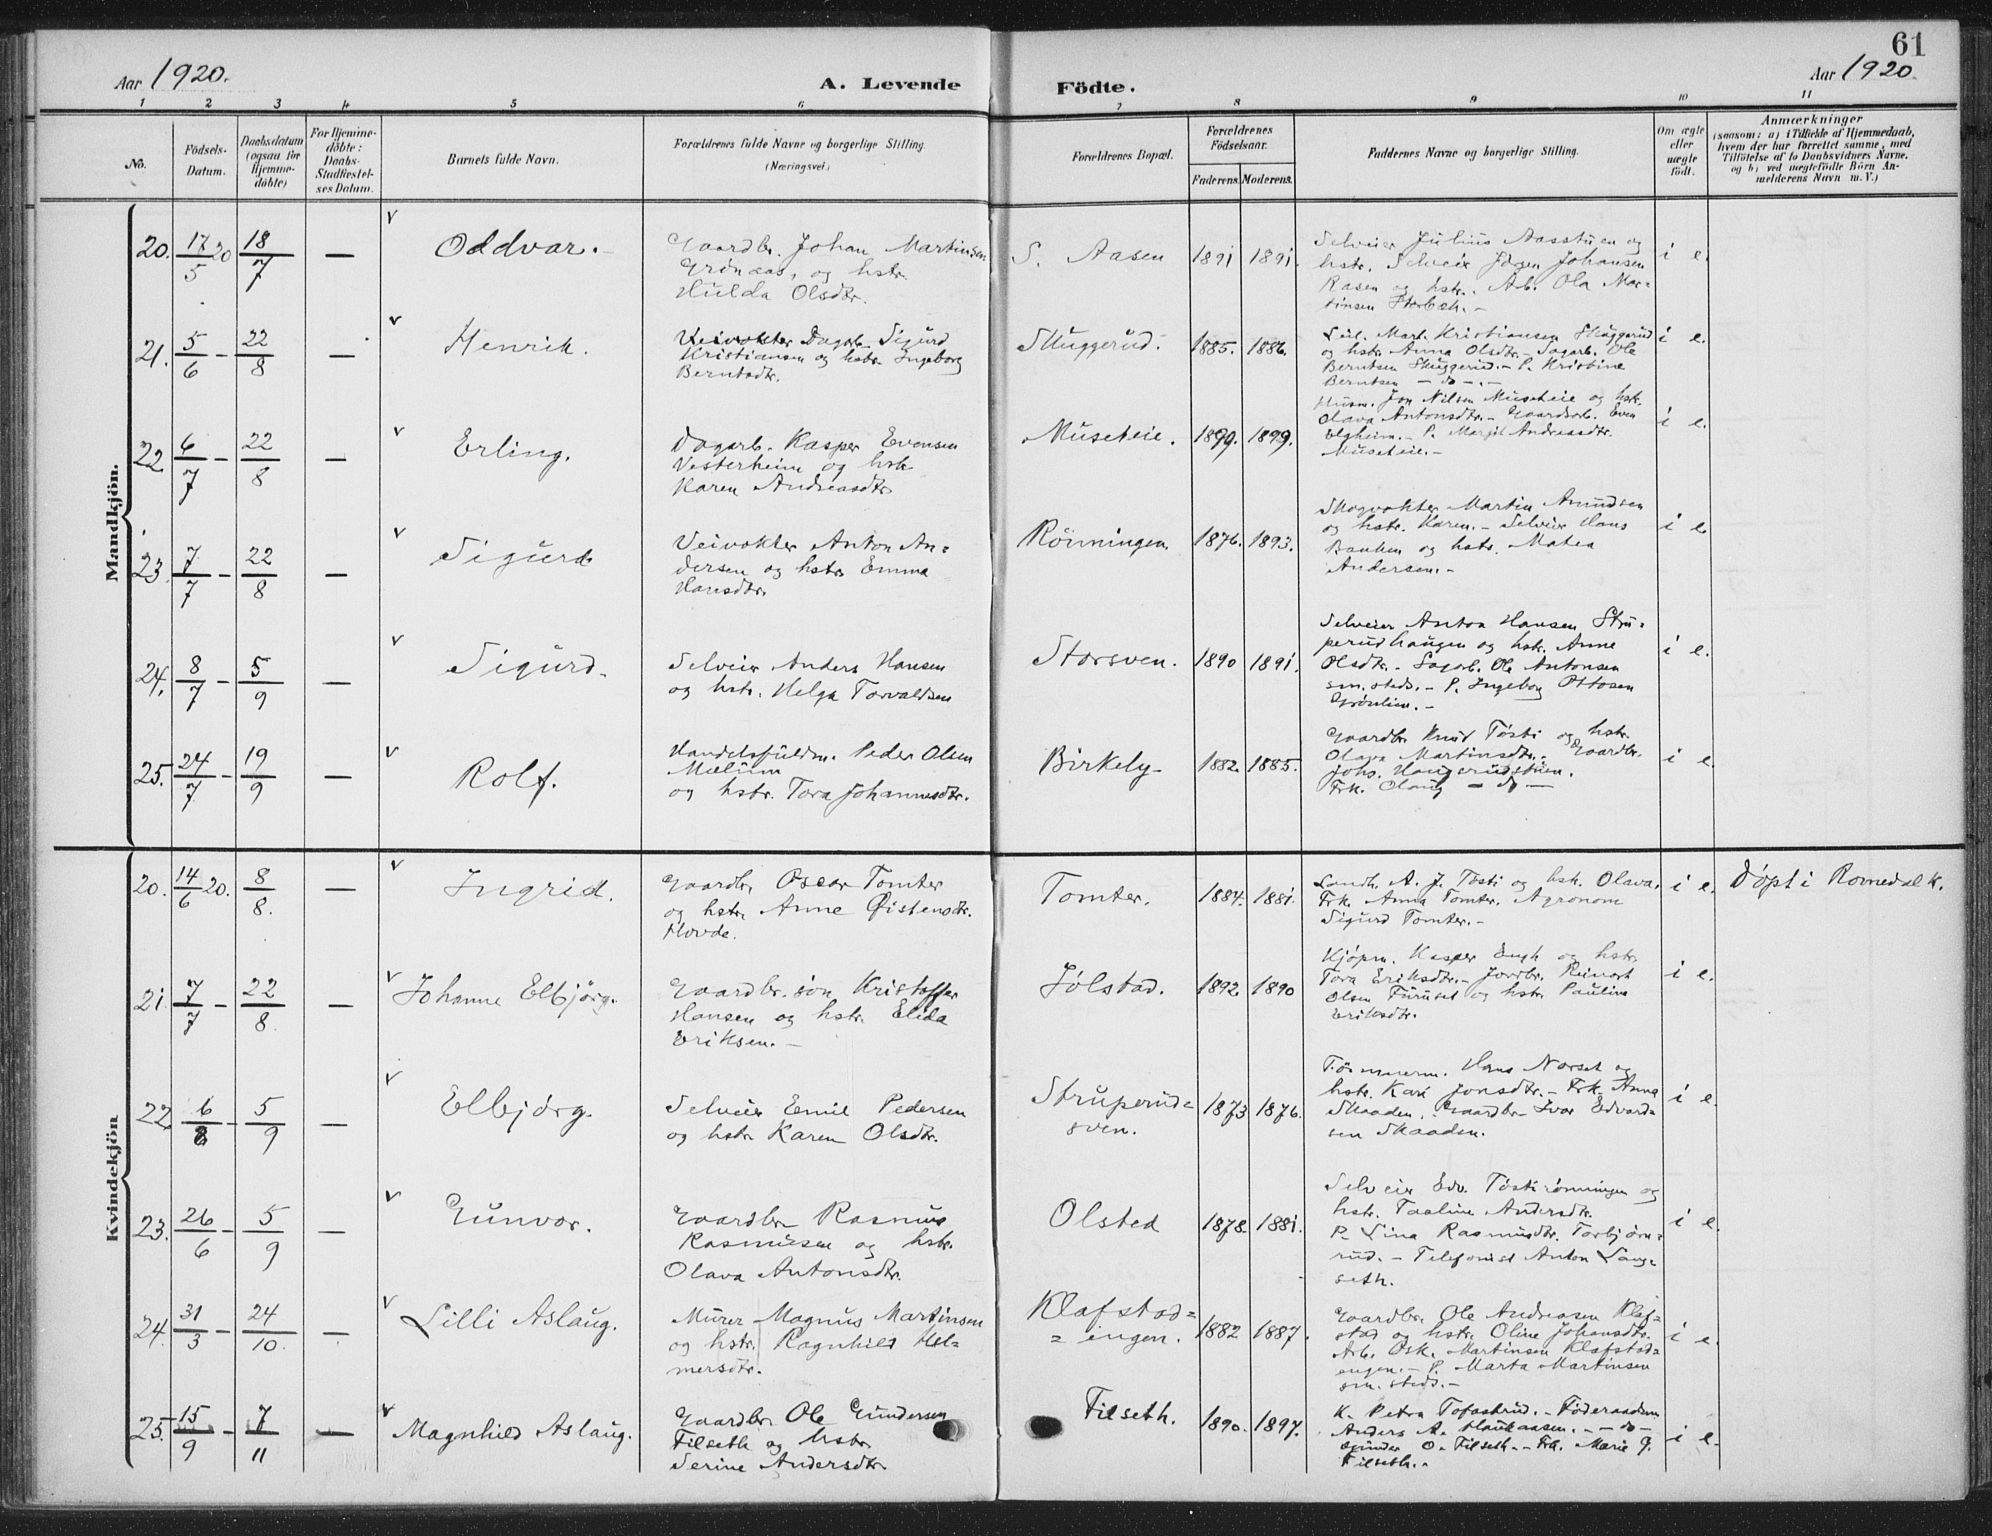 61
Aar 1920.
A. Levende
Födte.
Aar 1920
1 2 3 4 5 6 7 8 9 10 11
No.
Födsels-
Datum.
Daabsdatum
(ogsaa for
Hjemme-
döbte)
For Hjemme-
döbte:
Daabs-
Stadfæstel-
ses Datum.
Barnets fulde Navn.
Forældrenes fulde Navne og borgerlige Stilling.
(Næringsvei.)
Forældrenes Bopæl.
Forældrenes
Födselsaar.
Faderens. Moderens.
Faddernes Navne og borgerlige Stilling.
Om ægte
eller
uægte
födt.
Anmærkninger
(saasom: a) i Tilfælde af Hjemmedaab,
hvem der har forrettet samme, med
Tilföielse af to Daabsvidners Navne,
og b) ved uægtefödte Börn An-
melderens Navn m. V.)
Mandkjön.
20. 17/5 20 18/7 — v Oddvar.
Gaardbr. Johan Martinsen
Grönaas, og hstr.
Hulda Olsdtr.
S. Aasen 1891 1891.
Selveier Julius Aasstuen og
hstr. Selveier Jörgen Johansen
Aasen og hstr. Arb. Ola Mar-
tinsen
i e.
21. 5/6 - 22/8 — v Henrik.
Veivokter Dagarb. Sigurd
Kristiansen og hstr. Ingeborg
Berntsdtr.
Skuggerud. 1885. 1886.
Mart. Kristiansen Skuggerud
og hstr. Anna Olsdtr. - Sagarb. Ole
Berntsen Skuggerud. - P. Kristine
Berntsen — do —. -
i e.
22. 6/7 - 22/8 — v Erling.
Dagarb. Kasper Evensen
Vesterheim og hstr.
Karen Andreasdtr
Museteie. 1899. 1899.
Husm. Jon Nilsen Museteie og hstr.
Olava Antonsdtr. - Gaardarb. Even
Elgheim. - P. Margit Andreasdtr.
Museteie. -
i e.
23. 7/7 - 22/8 — v Sigurd
Veivokter Anton An-
dersen og hstr Emma
Hansdtr.
Rönningen 1876. 1893.
Skogvokter Martin Amundsen
og hstr. Karen. - Selveier Hans
Bakken og hstr. Matea
Andersen. -
i e.
24. 8/7 - 5/9 — v Sigurd.
Selveier Anders Hansen
og hstr. Helga Torvaldsen
Storsven. 1890 1891.
Selveier Anton Hansen Stru-
perudhaugen og hstr. Anne
Olsdtr. - Sagarb. Ole Antonsen
sm. steds. - P. Ingeborg Ottosen
Grönlien. -
i e.
25. 24/7 - 19/9 — v Rolf.
Handelsfuldm. Peder Olsen
Mælum
og hstr. Tora Johannesdtr.
Birkely 1882. 1885.
Gaardbr Knud Tösti og hstr.
Olava Martinsdtr. - Gaardbr.
Johs. Haugerudstuen.
Frk. Olaug — do —
i e.
Kvindekjön
20. 14/6 20. 8/8. — v Ingrid.
Gaardbr. Oscar Tomter
og hstr. Anne Øistensdtr.
Hovde.
Tomter. 1884. 1881.
Landh. A. J. Tösti og hstr. Olava.
Frk. Anna Tomter. Agronom
Sigurd Tomter. -
i e. Döpt i Romedal k.
21. 7/7 - 22/8. — v Johanne Elbjörg.
Gaardbr. sön Kristoffer
Hansen og hstr. Elida
Eriksen. -
Jölstad. 1892. 1890
Kjöpm. Kasper Engh og hstr.
Tora Eriksdtr. - Jordbr. Reinart
Olsen Furuset og hstr. Pauline
Eriksdtr.
i e.
22. 6/8 - 5/9 — v Elbjörg.
Selveier Emil Pedersen
og hstr. Karen Olsdtr.
Struperud-
sven. 1873 1876.
Tömmerm. Hans Norset og
hstr. Kari Jonsdtr. - Frk. Anna
Skaaden. Gaardbr. Ivar Edvard-
sen Skaaden.
i e.
23. 26/6 - 5/9 — v Gunvor.
Gaardbr. Rasmus
Rasmussen og hstr.
Olava Antonsdtr.
Olsted 1878. 1881.
Selveier Edv. Töstirönningen og
hstr. Taaline Andersdtr.
P. Lina Rasmusdtr. Torbjörn-
rud. - Telefonist Anton Lang-
seth.
i e.
24. 31/3 - 24/10. — v Lilli Aslaug.
Murer Magnus Martinsen
og hstr. Ragnhild Hel-
mersdtr.
Klafstad-
= engen. 1882 1887.
Gaardbr. Ole Andreasen Klaf-
stad og hstr. Oline Johansdtr.
Arb. Osk. Martinsen Klafstad-
engen. - P. Marta Martinsen
sm. steds. -
i e.
25. 15/9 - 7/11 — v Magnhild Aslaug.
Gaardbr. Ole Gundersen
Filseth og hstr
Serine Andersdtr
Filseth. 1890. 1897.
K. Petra Tofastrud. - Föderaadsm
Anders A. Haukaasen. - — do —
Gunder O. Filseth. - Frk. Marie G.
Filseth. -
i e.